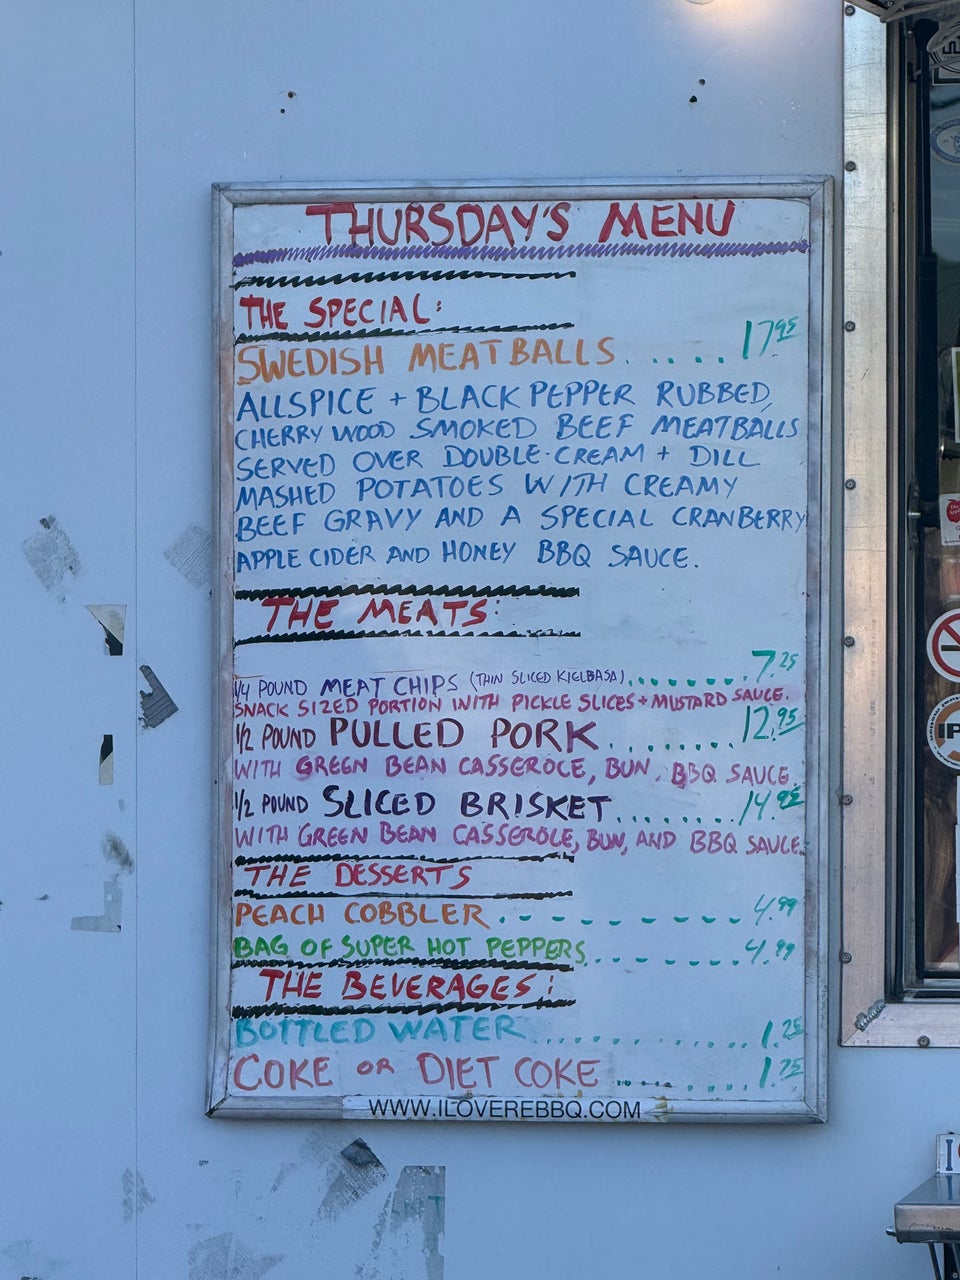 THURSDAY'S MENU
THE SPECIAL:
SWEDISH MEATBALLS..... 17.95
ALLSPICE + BLACK PEPPER RUBBED,
CHERRY WOOD SMOKED BEEF MEATBALLS
SERVED OVER DOUBLE-CREAM + DILL
MASHED POTATOES WITH CREAMY
BEEF GRAVY AND A SPECIAL CRANBERRY
APPLE CIDER AND HONEY BBQ SAUCE.
THE MEATS:
1/4 POUND MEAT CHIPS (THIN SLICED KIELBASA)........ 7.25
SNACK SIZED PORTION WITH PICKLE SLICES + MUSTARD SAUCE.
1/2 POUND PULLED PORK........ 12.95
WITH GREEN BEAN CASSEROLE, BUN, BBQ SAUCE.
1/2 POUND SLICED BRISKET........ 14.95
WITH GREEN BEAN CASSEROLE, BUN, AND BBQ SAUCE.
THE DESSERTS
PEACH COBBLER......... 4.99
BAG OF SUPER HOT PEPPERS........ 4.99
THE BEVERAGES:
BOTTLED WATER............. 1.25
COKE OR DIET COKE ........ 1.75
WWW.ILOVEREBBQ.COM